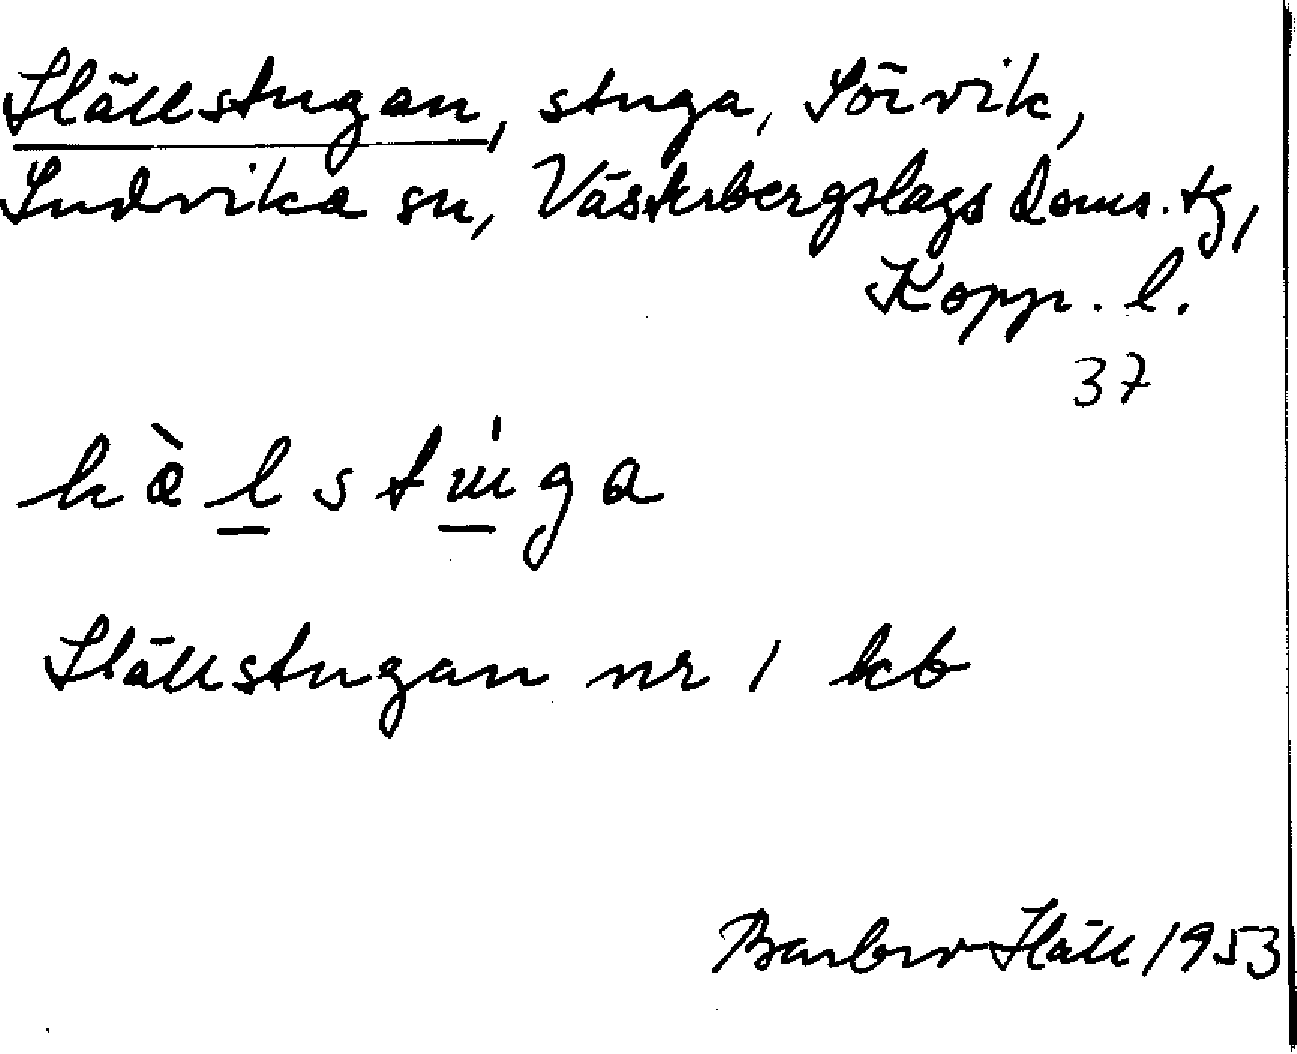 Hällstugan, stuga, Sörvik,
Ludvika sn, Västerbergslags doms. tg,
Kopp. l.
37
hàlstùga
Hällstugan nr 1 kb
Barbro Häll 1953